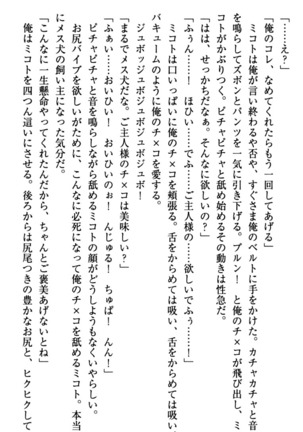 「……え?」
「俺のコレ、なめてくれたらもう一回してあげる」
ミコトは俺が言い終わるや否や、すぐさま俺のベルトに手をかけた。カチャカチャと音
を鳴らしてズボンとパンツを一気に引き下げる。ブルン! と俺のチ×コが飛び出し、ミ
コトがかぶりつく。ピチャピチャと舐め始めるその動きは性急だ。
「はは、せっかちだなぁ。そんなに欲しいの?」
「ふぅん……! ほひい……でふ……ご主人様の……欲しいでふぅ……!
ミコトは口いっぱいに俺のチ×コを頬張る。舌をからめては吸い、舌をからめては吸い、
バキュームのように俺のチ×コを愛する。
ジュボッジュボジュボジュボジュボ!
「まるでメス犬だな。ご主人様のチ×コは美味しい?」
「ふぁい……おいひい! おいひいのぉ! んじゅる! ちゅば! んん!」
ピチャピチャと音を鳴らしながら舐めるミコトの顔がどうしようもなくいやらしい。
お尻バイブを欲しいがために、こんなに必死になって俺のチ×コを舐めるミコト。本当
にメス犬の飼い主になった気分だ。
「こんなに一生懸命やってくれたんだから、ちゃんとご褒美あげないとね」
俺はミコトを四つん這いにさせる。後ろからは尻尾つきの豊かなお尻と、ヒクヒクして